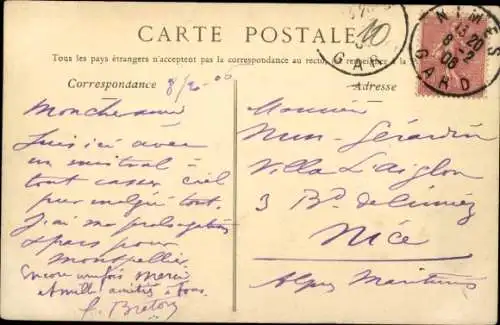 CARTE POSTALE
Tous les pays étrangers n'acceptent pas la correspondance au recto, se renseigner à la
Correspondance 8/2-06
Adresse
Mon cher ami
Suis ici avec
un mistral à
tout casser, ciel
pur malgré tout.
J'ai ma prolongation
& pars pour
Montpellier.
Encore une fois merci
et mille amitiés à tous.
F. Breton
Monsieur
Villa L'aiglon
3 Bd de Cimiez
Nice
Alpes Maritimes
10
GARD
NIMES
13 20
8 -2
06
GARD